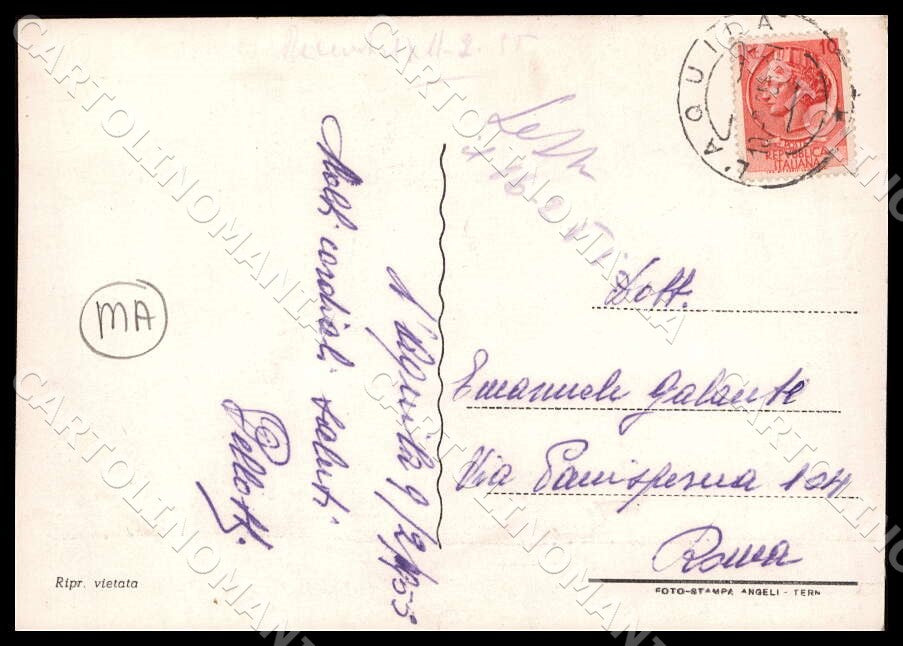 L'AQUILA
10
REPUBBLICA
ITALIANA
11-2-55
L'Aquila 9/2/1955
Molti cordiali saluti
MA
Dott.
Emanuele Galante
Via Panisperna 104
Roma
Ripr. vietata
FOTO-STAMPA ANGELI - TERNI
CARTOLINOMANIA